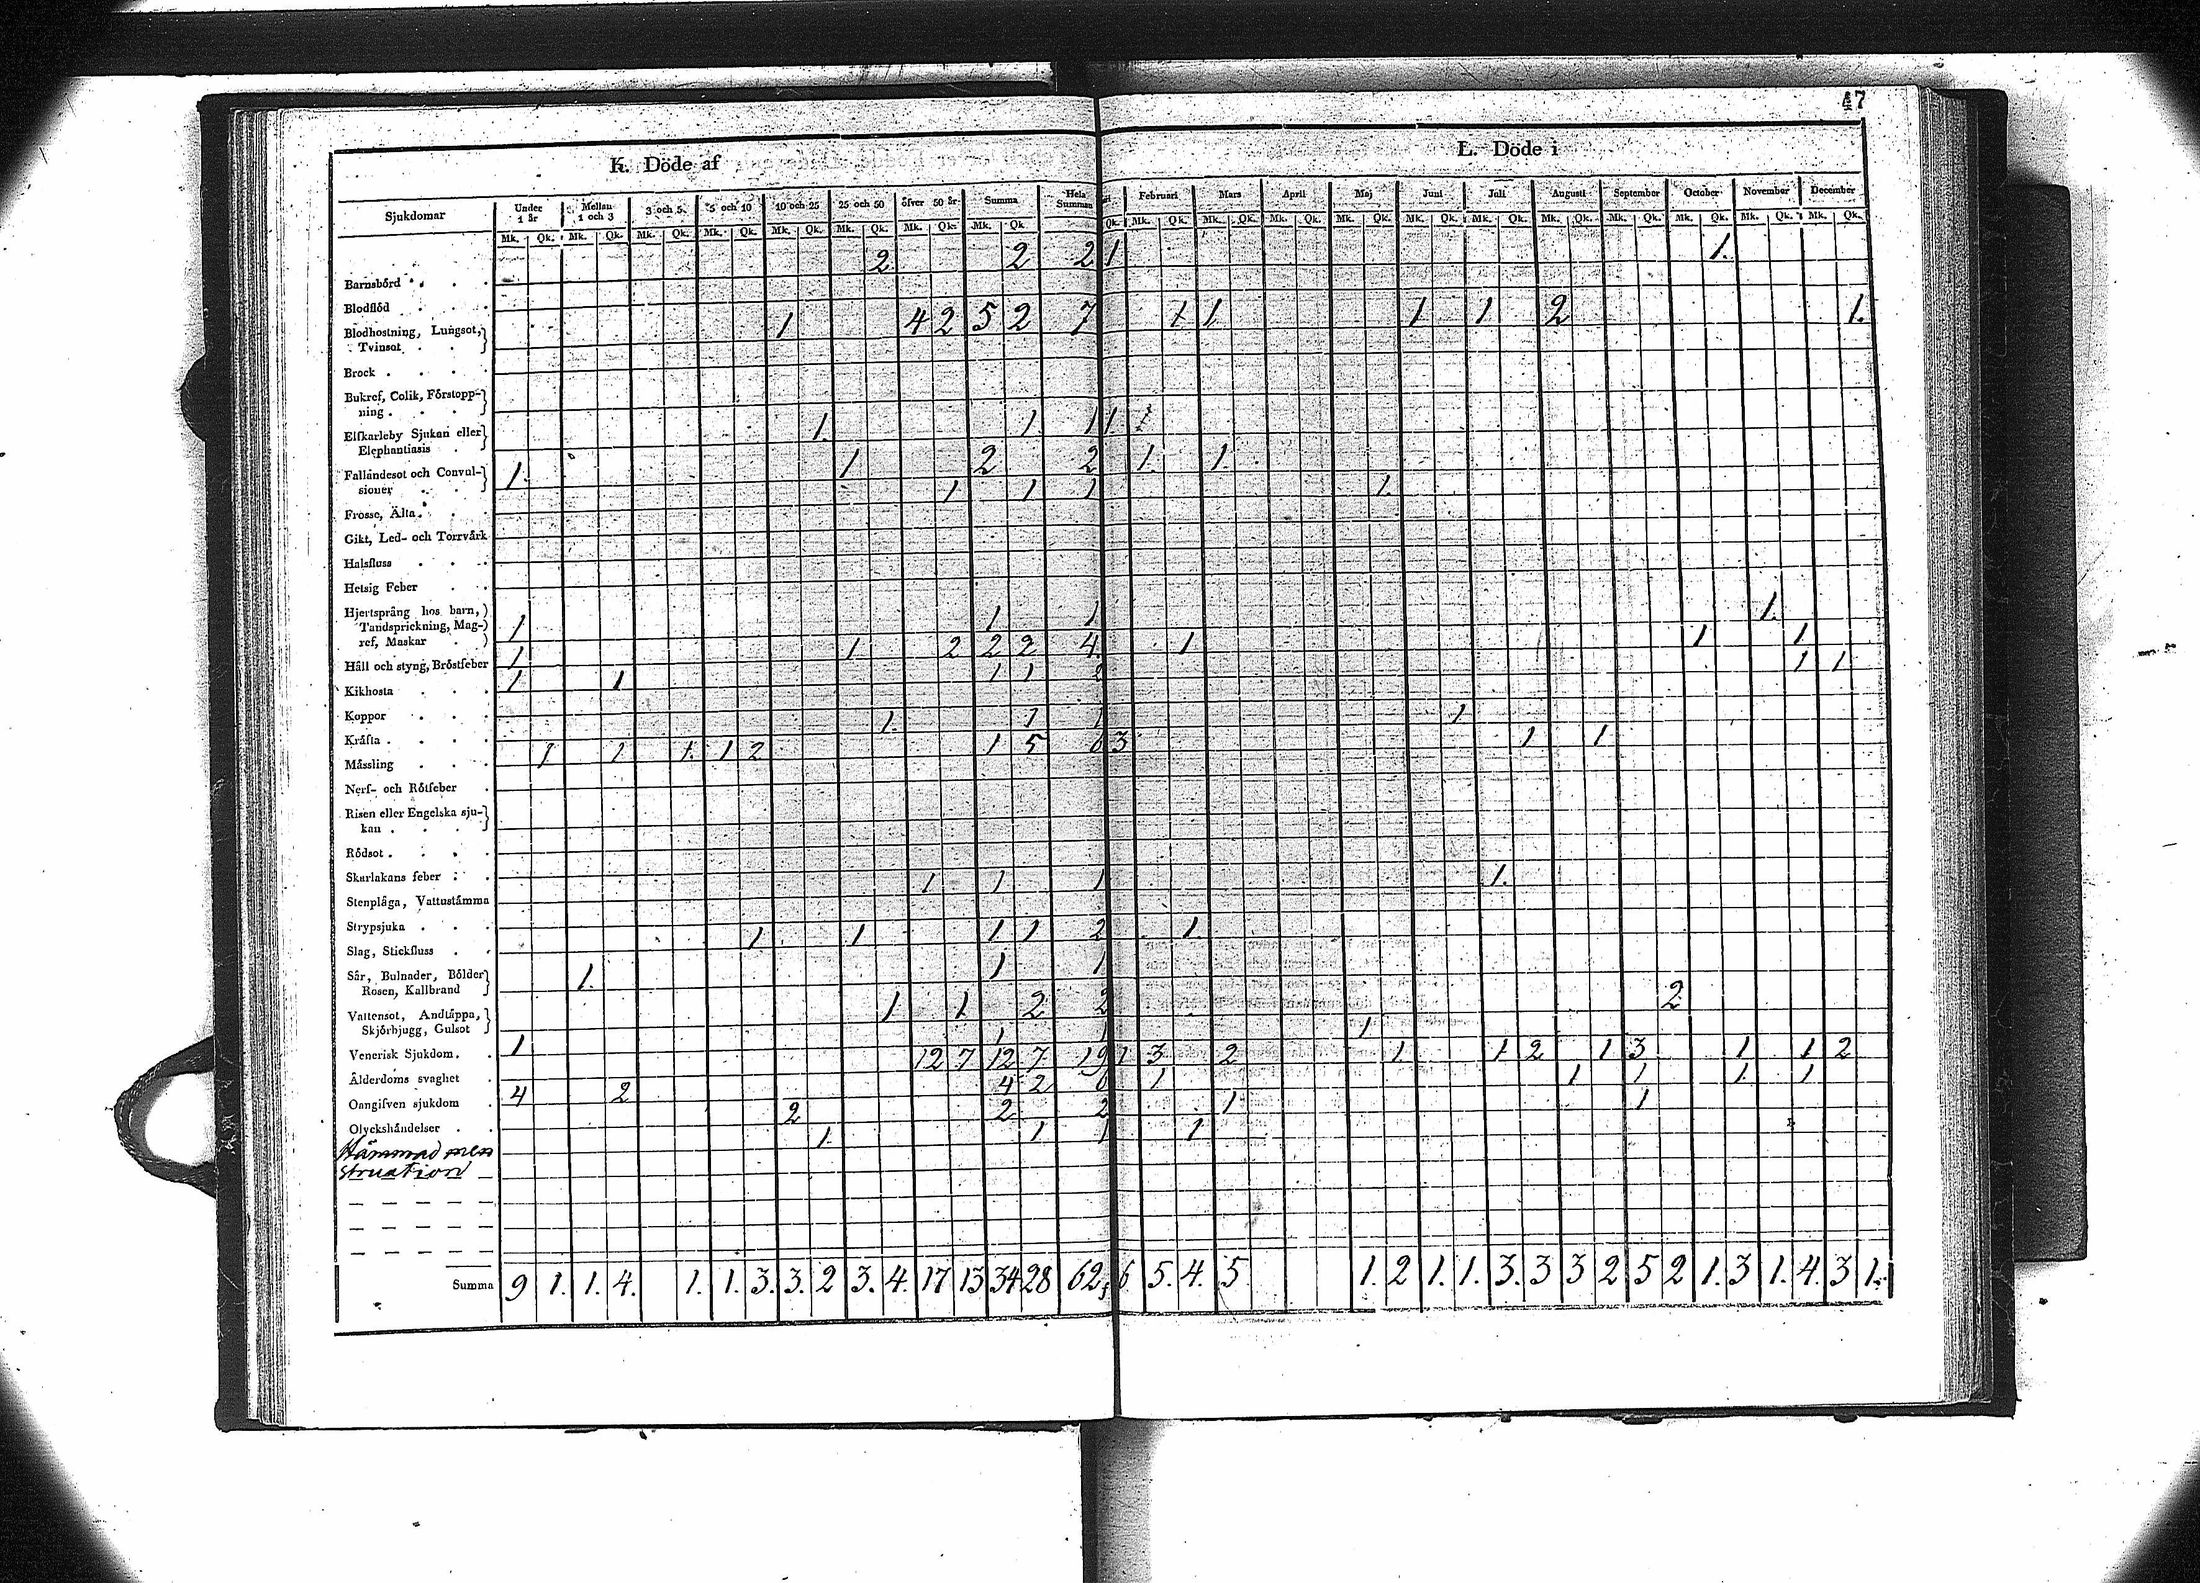 47
K. Döde af
L. Döde i
Sjukdomar Under 1 år Mellan 1 och 3 3 och 5 5 och 10 10 och 25 25 och 50 öfver 50 år Summa Hela Summan Februari Mars April Maj Juni Juli Augusti September October November December
Mk. Qk. Mk. Qk. Mk. Qk. Mk. Qk. Mk. Qk. Mk. Qk. Mk. Qk. Mk. Qk. Qk. Mk. Qk. Mk. Qk. Mk. Qk. Mk. Qk. Mk. Qk. Mk. Qk. Mk. Qk. Mk. Qk. Mk. Qk. Mk. Qk. Mk. Qk.
Barnsbörd 2 2 2 1 1.
Blodflöd
Blodhostning, Lungsot,
Tvinsot 1 4 2 5 2 7 1 1 1 1 2 1.
Brock
Bukref, Colik, Förstopp-
ning
Elfkarleby Sjukan eller
Elephantiasis 1. 1 1 1
Fallandesot och Convul-
sioner 1. 1 2 2 1. 1.
Frosse, Älta 1 1 1 1.
Gikt, Led- och Torrvärk
Halsfluss
Hetsig Feber
Hjertsprång hos barn,
Tandsprickning, Mag-
ref, Maskar 1 1 1 1.
Håll och styng, Bröstfeber 1 1 2 2 2 4. 1 1 1
Kikhosta 1 1 1 1 2 1 1
Koppor
Kräfta 1. 1 1 1
Mässling 1 1 1. 1 2 1 5 6 3 1 1
Nerf- och Rötfeber
Risen eller Engelska sju-
kan
Rödsot
Skarlakans feber
Stenplåga, Vattustämma 1 1 1 1.
Strypsjuka
Slag, Stickfluss 1 1 1 1 2 1
Sår, Bulnader, Bölder
Rosen, Kallbrand 1. 1 1
Vattensot, Andtäppa,
Skjörbjugg, Gulsot 1 1 2 2 2
Venerisk Sjukdom 1 1 1 1
Ålderdoms svaghet 12 7 12 7 19 1 3 2 1 1 2 1 3 1 1 2
Oangifven sjukdom 4 2 4 2 6 1 1 1 1. 1
Olyckshändelser 2 2 2 1 1
Hämmad men
struation 1. 1 1 1
Summa 9 1. 1. 4. 1. 1. 3. 3. 2 3. 4. 17 13 34 28 62. 6 5. 4. 5 1. 2 1. 1. 3. 3 3 2 5 2 1. 3 1. 4. 3 1.